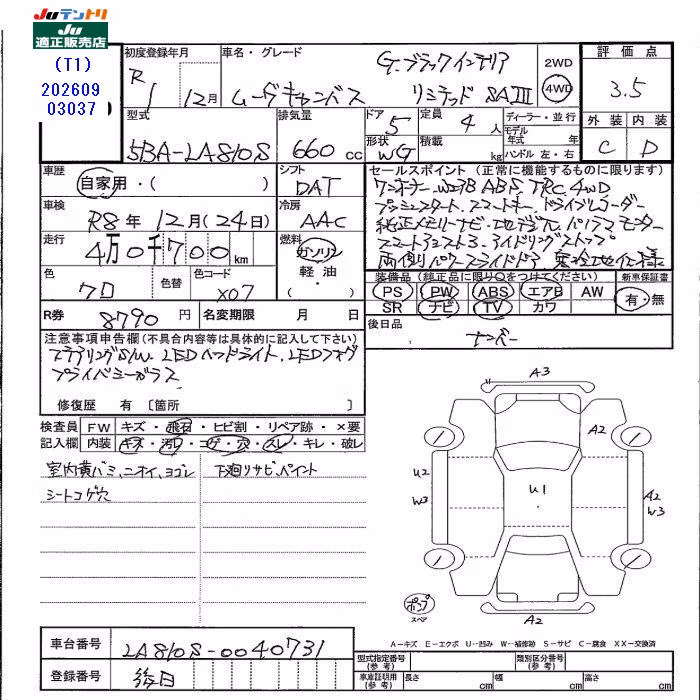 Juテントリ
Ju
適正販売店
(T1)
202609
03037
初度登録年月
R1 12月
車名・グレード
ムーヴキャンバス
G・ブラックインテリア
リミテッド SAⅢ
2WD
4WD
評価点
3.5
外装 内装
C D
型式
5BA-LA810S
排気量
660 cc
ドア
5
定員
4 人
形状
WG
積載
kg
ディーラー・並行
モデル
年式 年
ハンドル 左・右
車歴
自家用・( )
シフト
DAT
車検
R8年12月(24日)
冷房
AAC
走行
4万0千700km
燃料
ガソリン
軽油
( )
色
クロ
色替
色コード
X07
R券
8790円
名変期限 月 日
セールスポイント(正常に機能するものに限ります)
ワンオーナー ABS TRC 4WD
プッシュスタート スマートキー ドライブレコーダー
純正メモリーナビ・地デジTV パノラマモニター
スマートアシスト3 アイドリングストップ
両側パワースライドドア 寒冷地仕様
装備品(純正品に限り○をつけてください)
PS PW ABS エアB AW
SR ナビ TV カワ
新車保証書
有・無
後日品
ナンバー
注意事項申告欄(不具合内容等は具体的に記入して下さい)
ステアリングS/W LEDヘッドライト、LEDフォグ
プライバシーガラス
修復歴 有 〔箇所 〕
検査員
記入欄
FW キズ・飛石・ヒビ割・リペア跡・×要
内装 キズ・汚れ・コゲ・穴・スレ・キレ・破レ
室内黄バミ、ニオイ、ヨゴレ
シートコゲ穴
下廻りサビ、ペイント
A3
A2
U2
W3
U1
A2
W3
A2
ポンプ
スペア
A-キズ E-エクボ U-凹み W-補修跡 S-サビ C-腐食 XX-交換済
車台番号
LA810S-0040731
登録番号
後日
型式指定番号
(参考)
類別区分番号
(参考)
車庫証明用
(参考)
長さ cm 幅 cm 高さ cm